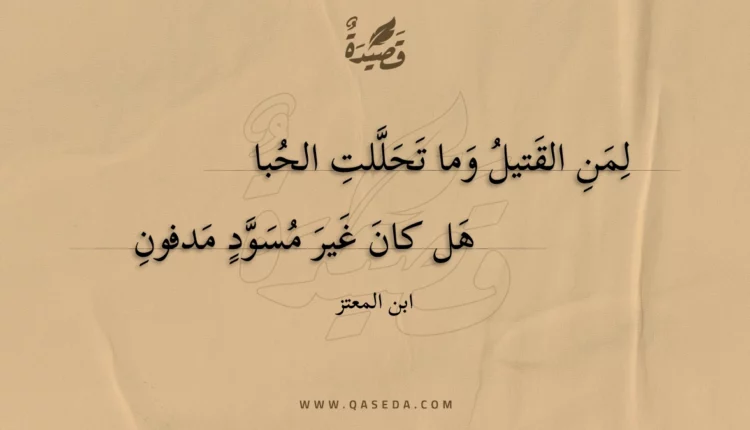 قَصِيْدَةٌ
لِمَنِ القَتيلُ وَما تَحَلَّلتِ الحُبا
هَل كانَ غَيرَ مُسَوَّدٍ مَدفونِ
ابن المعتز
WWW.QASEDA.COM